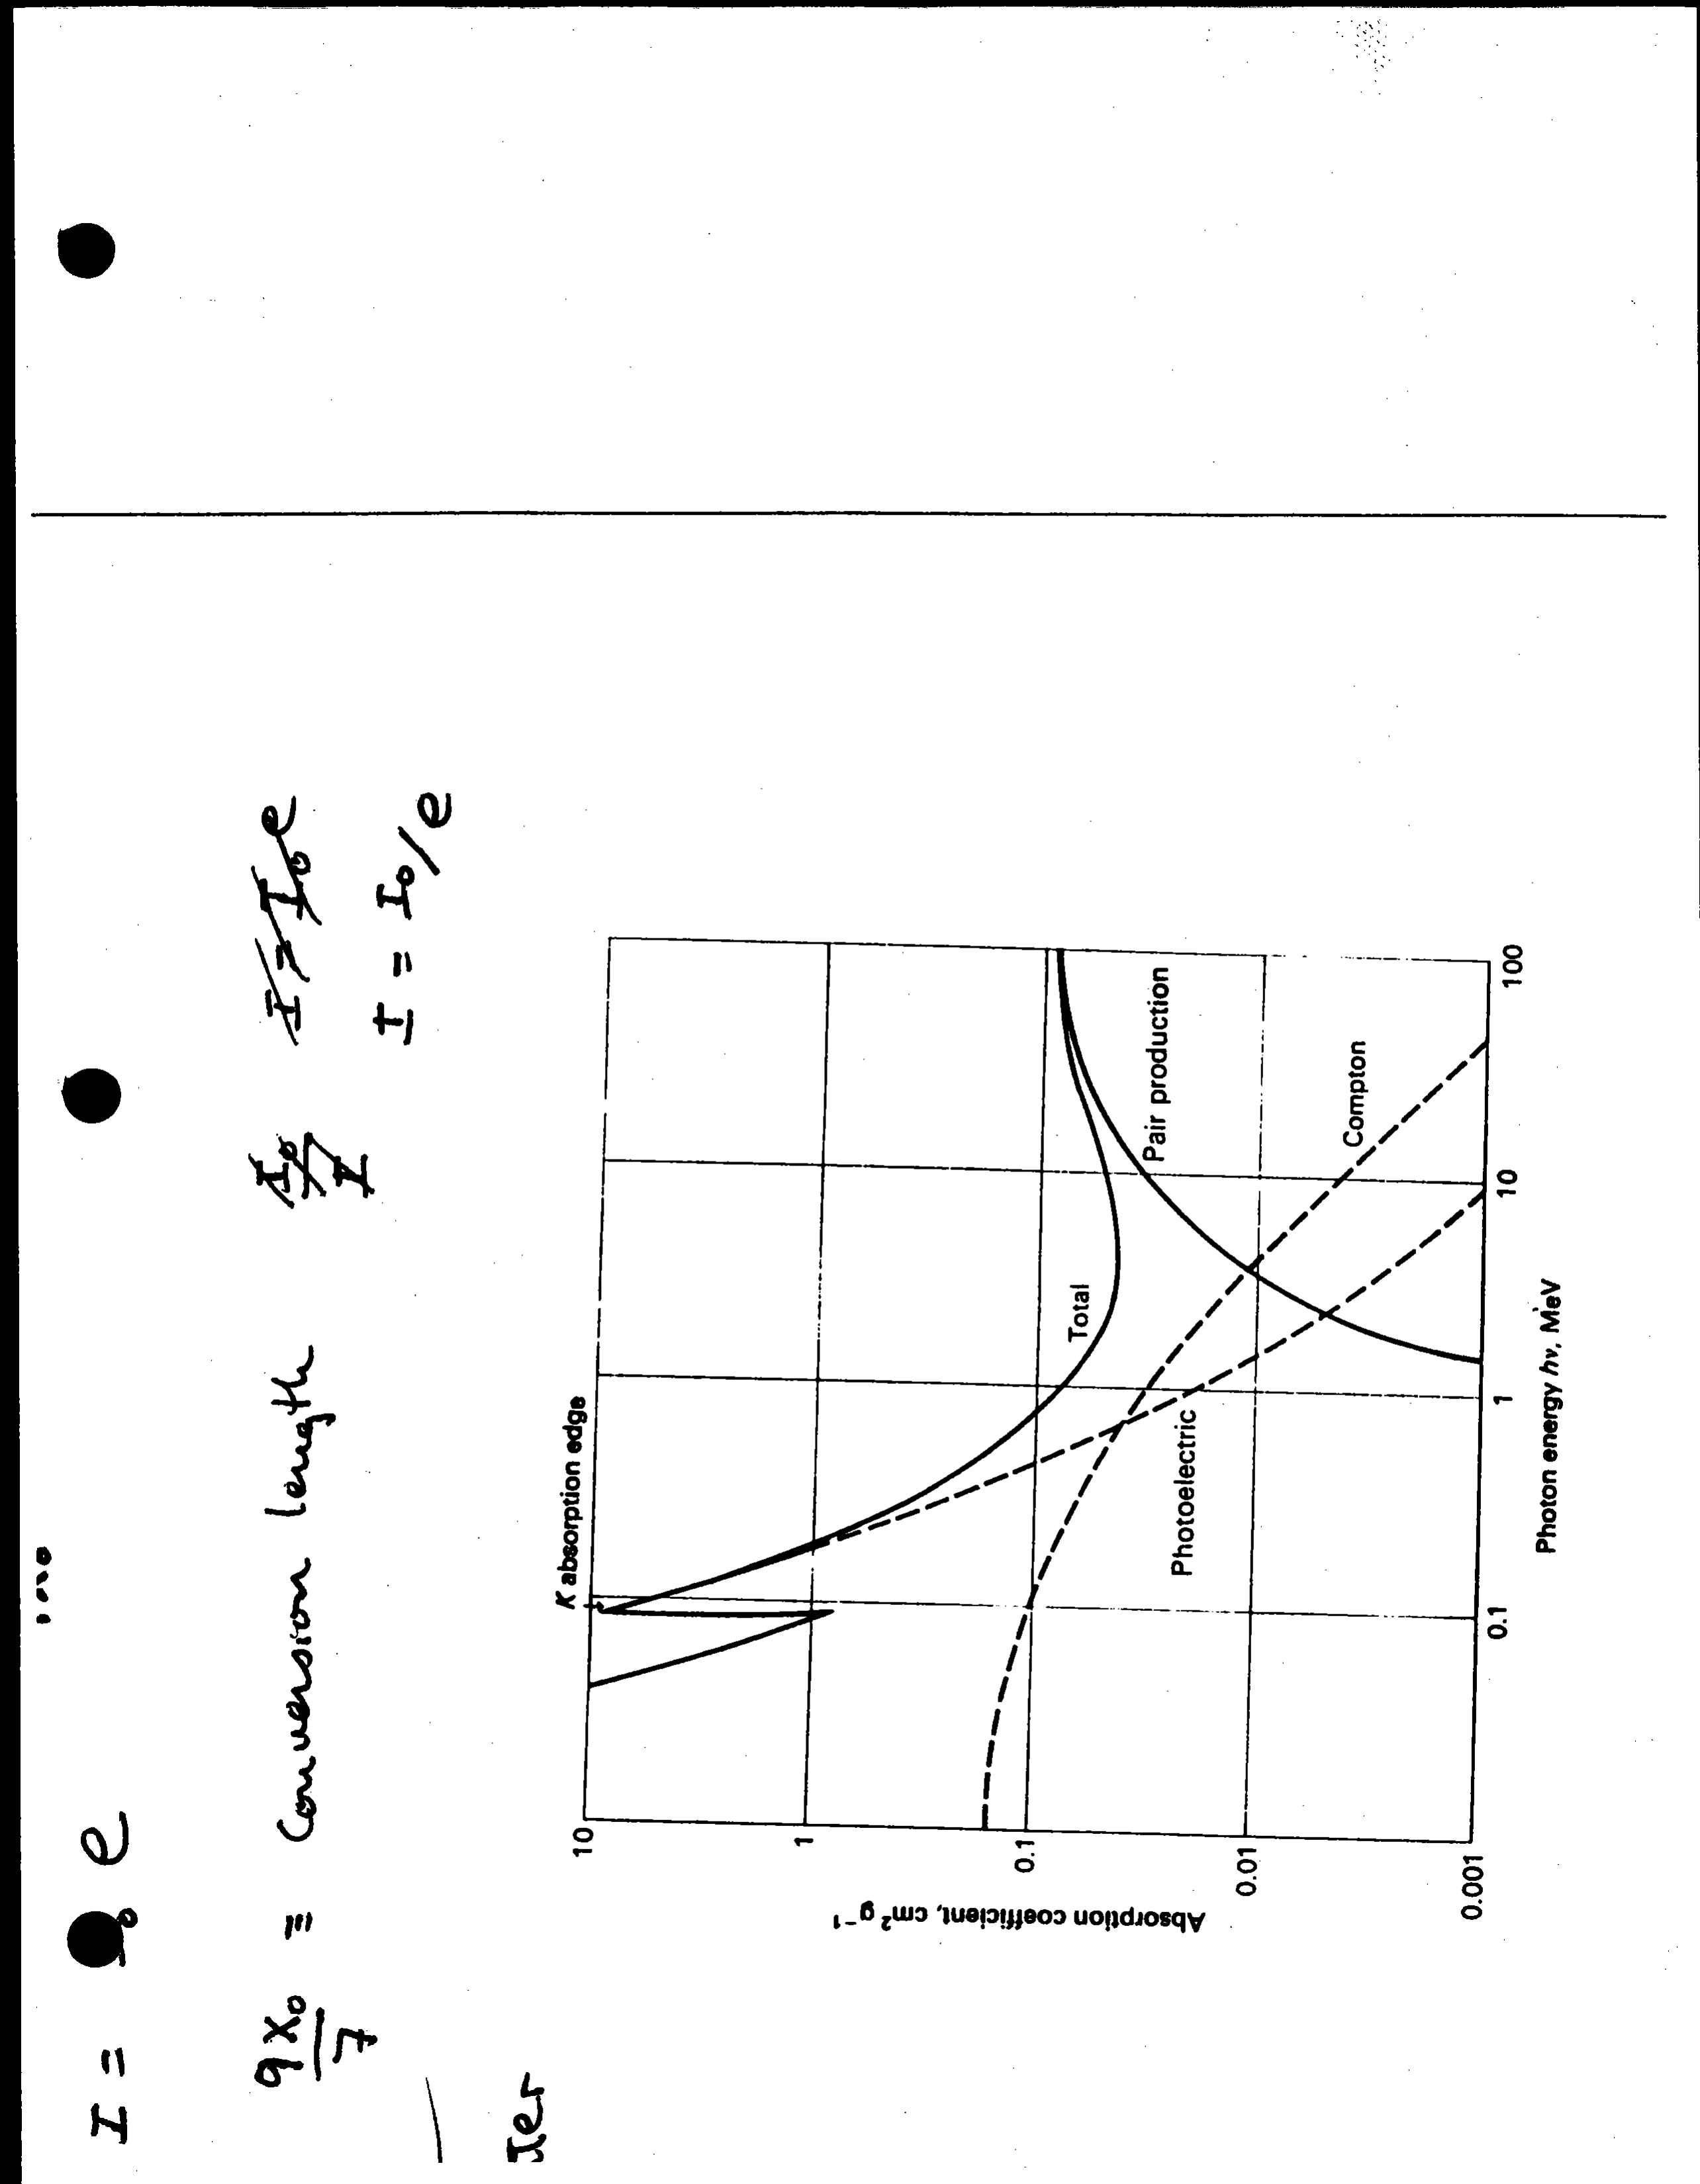 I = I₀ e
9X₀/7 ≡ Conversion length I₀/I I = I₀ e
I = I₀/e
K absorption edge
10
1
0.1
0.01
0.001
Absorption coefficient, cm² g⁻¹
Total
Pair production
Photoelectric
Compton
0.1
1
10
100
Photon energy hν, MeV